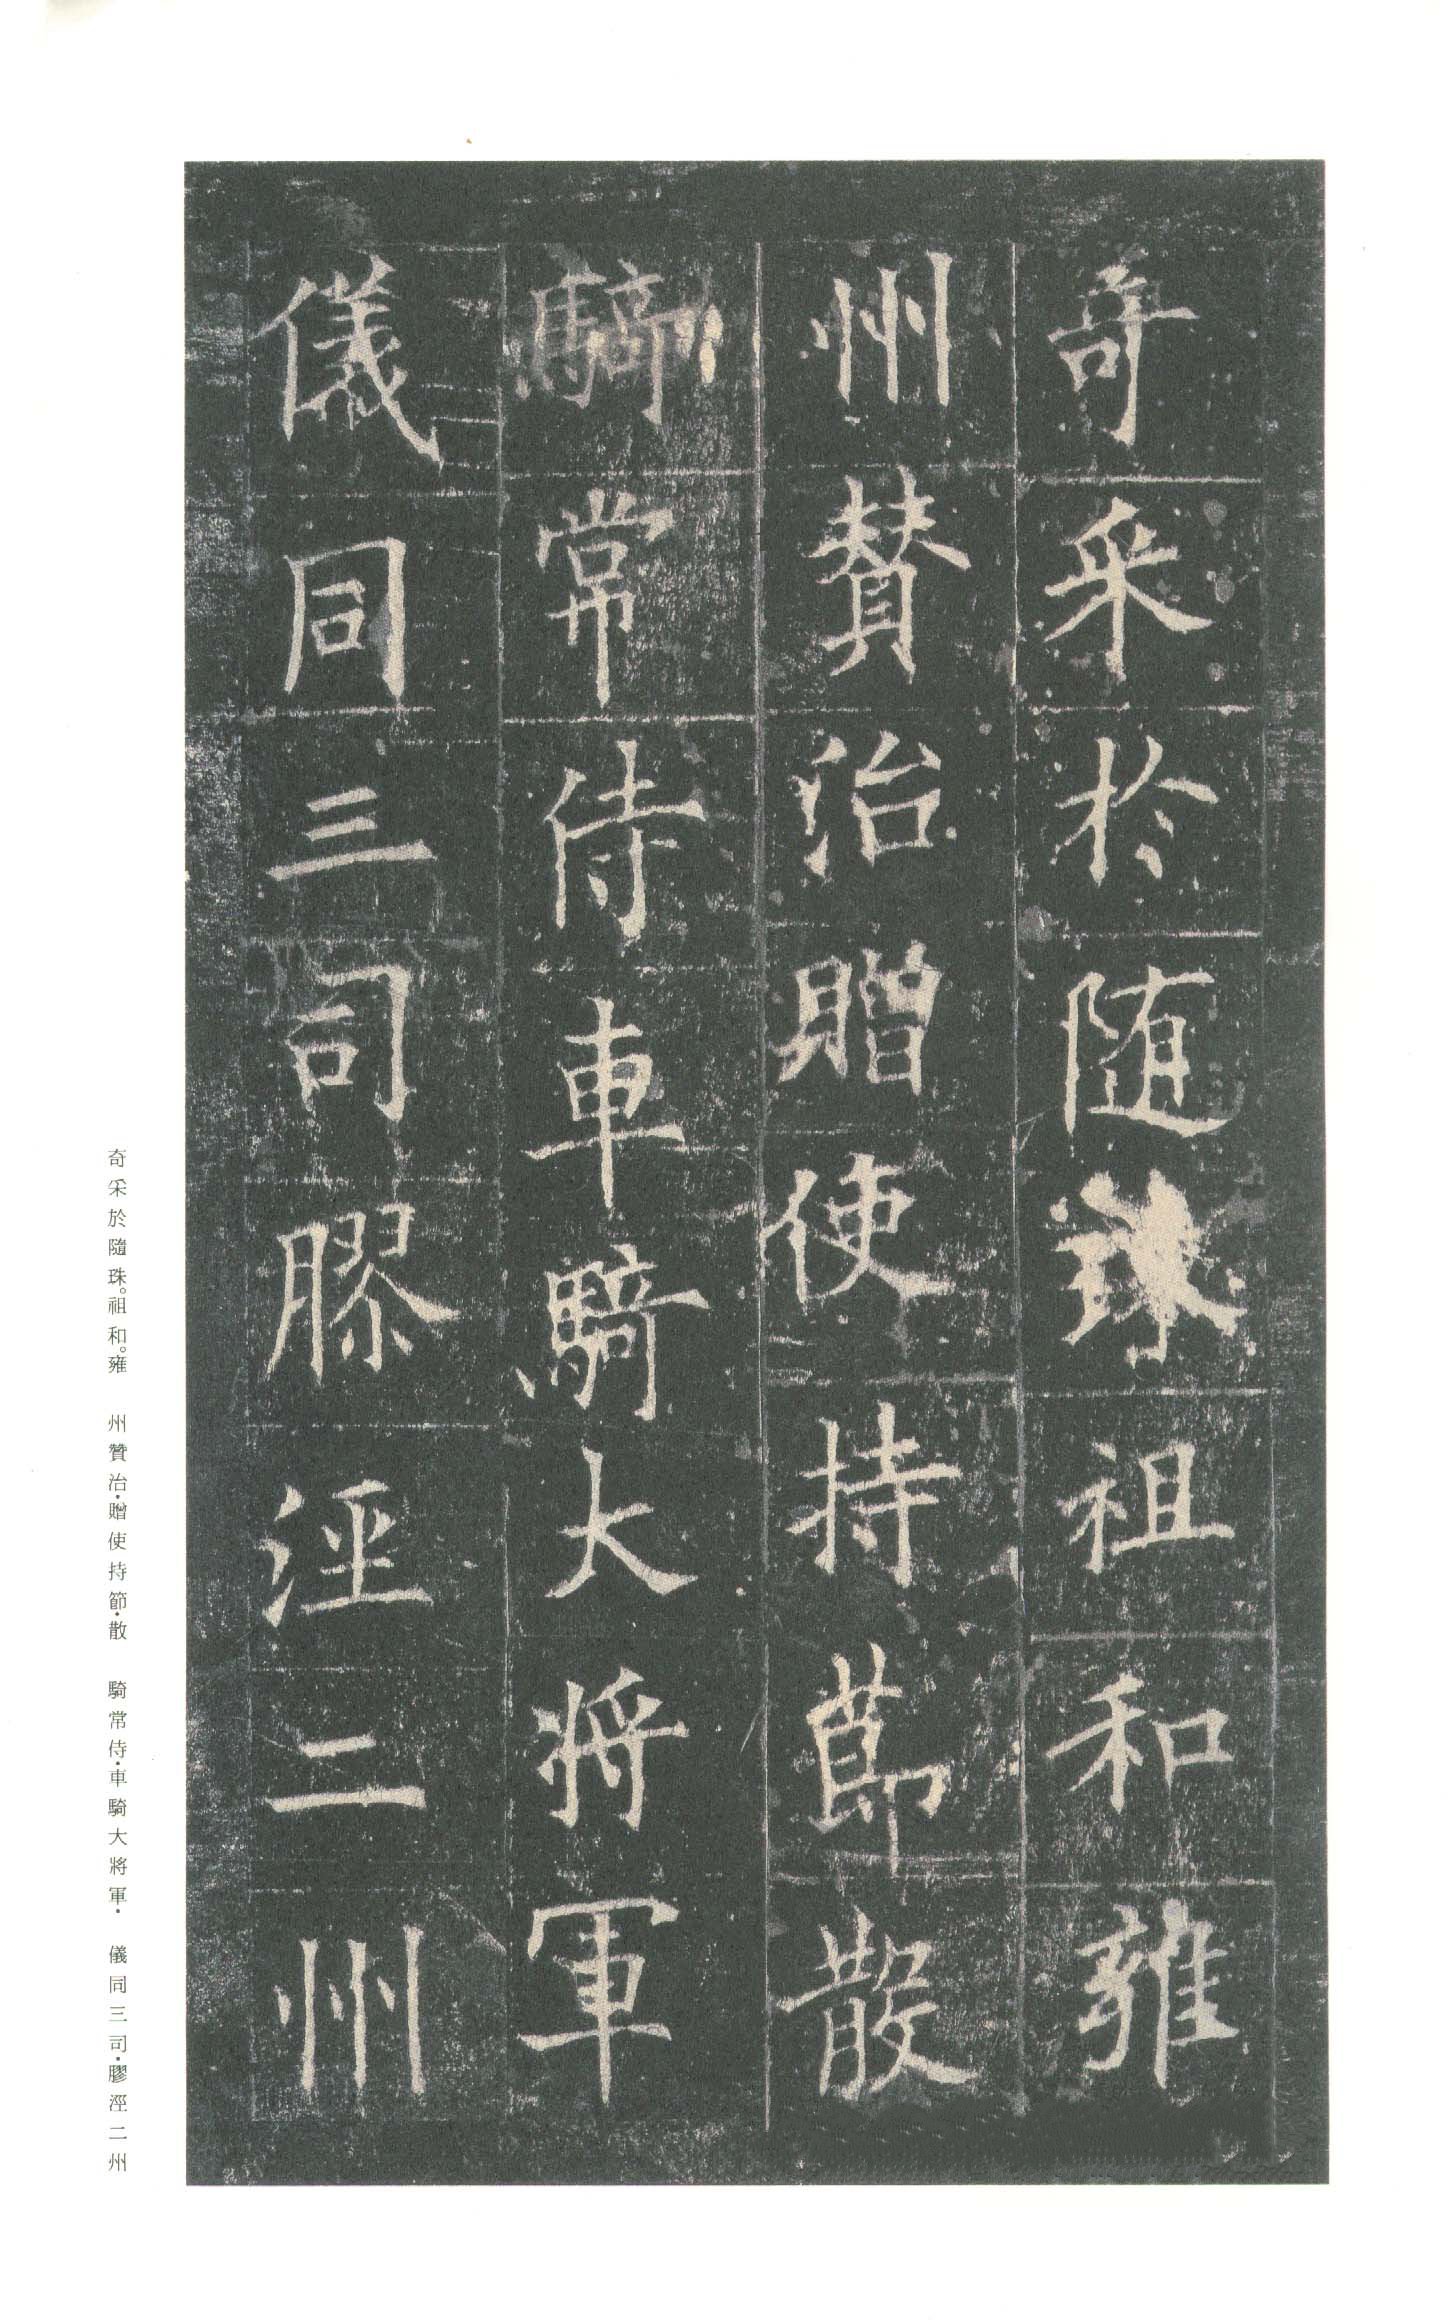 奇采於随珠祖和雍
州賛治贈使持節散
騎常侍車騎大將軍
儀同三司膠涇二州
奇采於隨珠。祖和。雍　州贊治·贈使持節·散　騎常侍·車騎大將軍·　儀同三司·膠涇二州